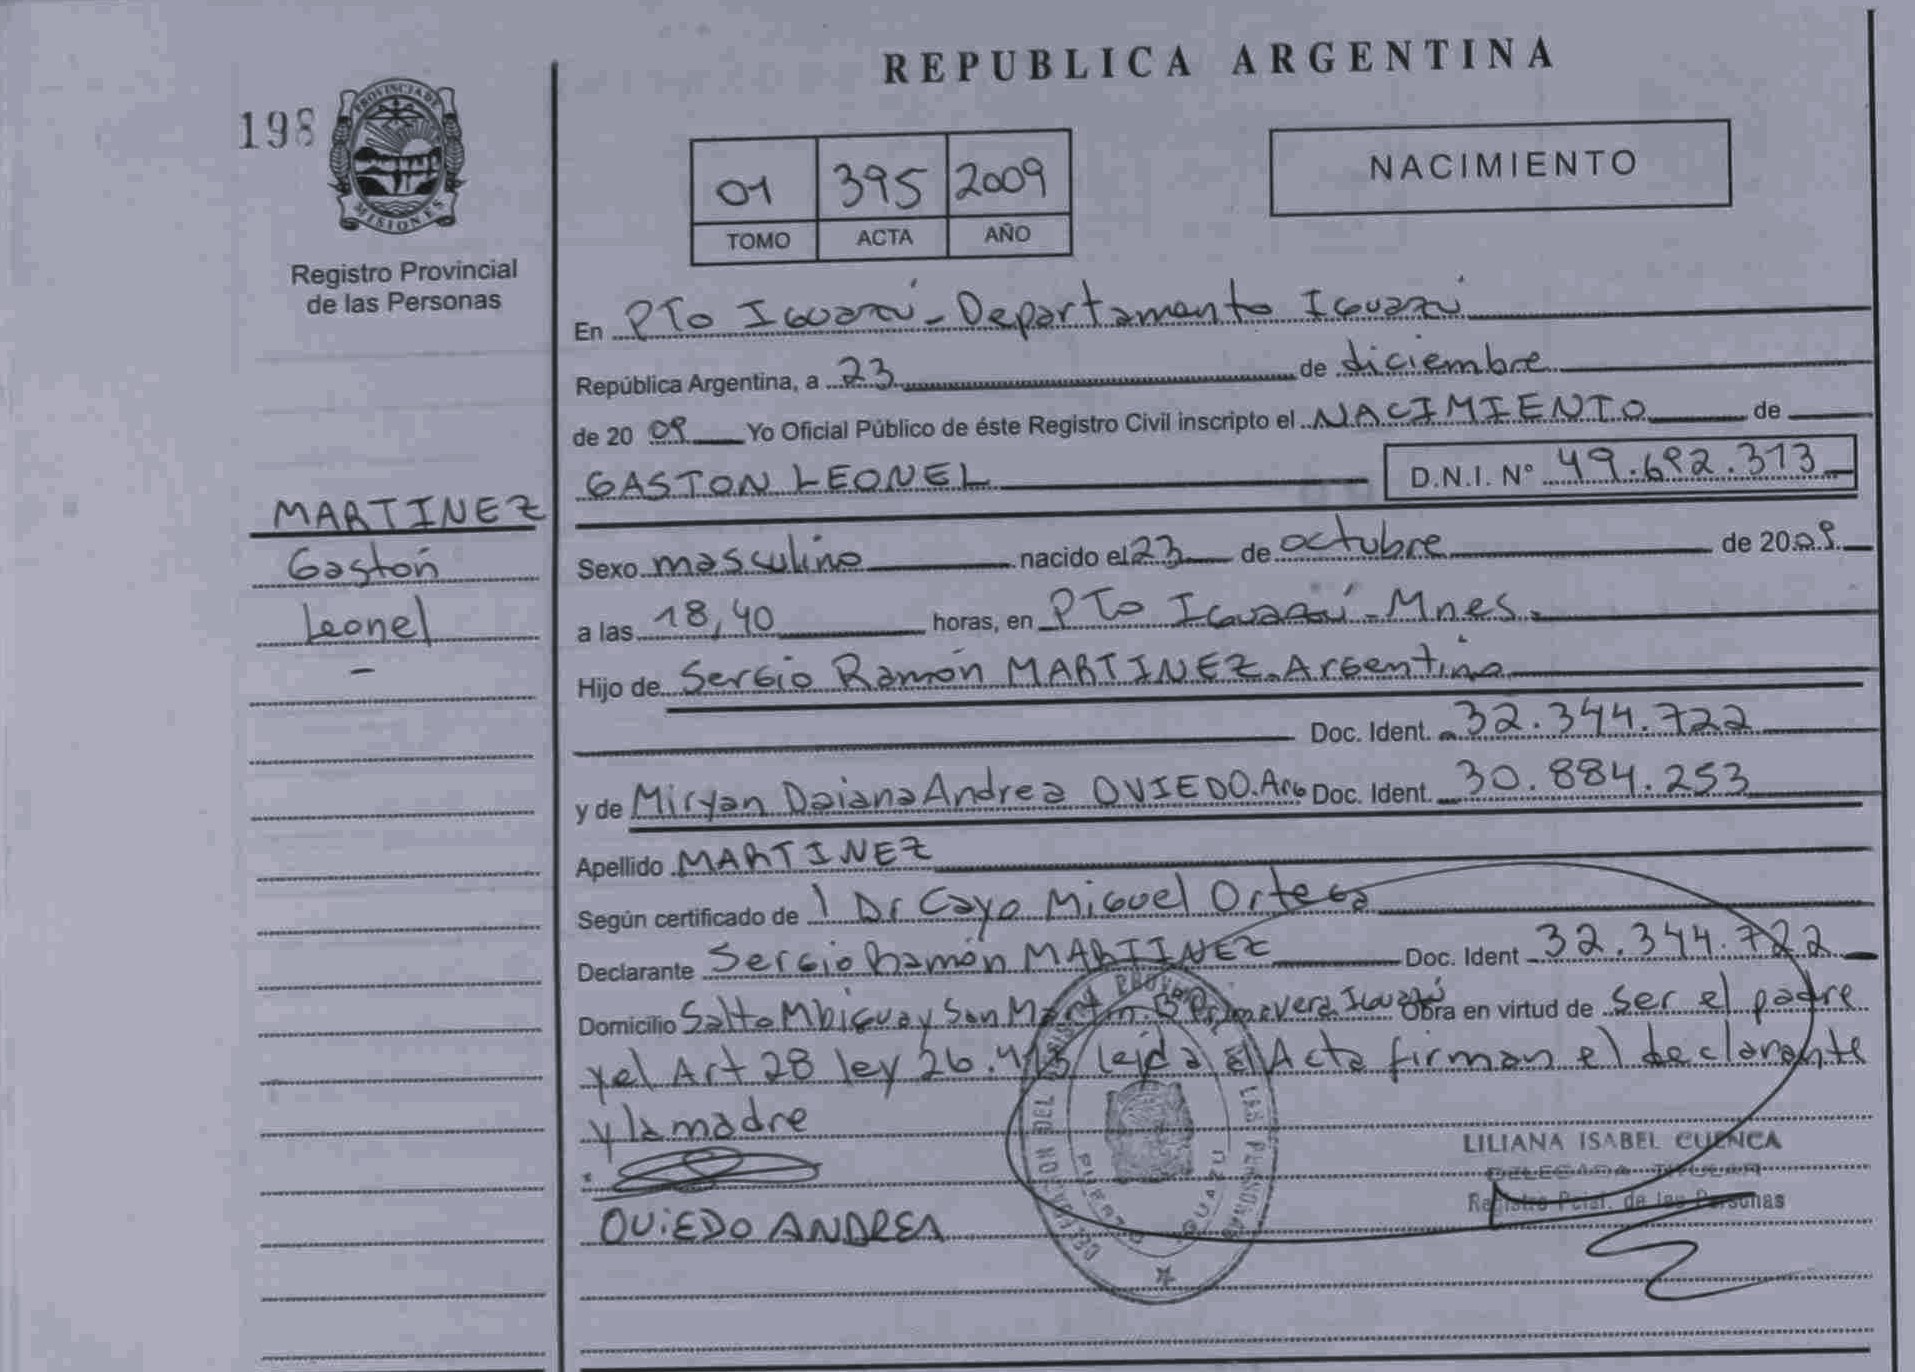 REPUBLICA ARGENTINA
198
PROVINCIA DE
MISIONES
Registro Provincial
de las Personas
01 395 2009
TOMO ACTA AÑO
NACIMIENTO
En PTo Iguazú - Departamento Iguazú
República Argentina, a 23 de diciembre
de 2009 Yo Oficial Público de éste Registro Civil inscripto el NACIMIENTO de
GASTON LEONEL D.N.I. Nº 49.692.313
MARTINEZ
Gastón
Leonel
-
Sexo masculino nacido el 23 de octubre de 2009
a las 18,40 horas, en PTo Iguazú - Mnes.
Hijo de Sergio Ramón MARTINEZ. Argentino
Doc. Ident. 32.344.722
y de Miryan Daiana Andrea OVIEDO. Arg Doc. Ident. 30.884.253
Apellido MARTINEZ
Según certificado de Dr Cayo Miguel Ortega
Declarante Sergio Ramón MARTINEZ Doc. Ident 32.344.722
Domicilio Salto Mbigua y San Martin. Bº Primavera Iguazú Obra en virtud de ser el padre
y el Art 28 ley 26.413 leida el Acta firman el declarante
y la madre
OVIEDO ANDREA
LILIANA ISABEL CUENCA
DELEGADA TITULAR
Registro Pcial. de las Personas